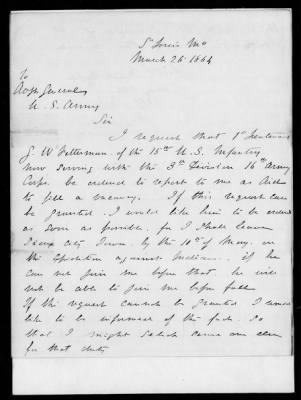 St Louis Mo
March 26 1864
To
Adjt General
U. S. Army
Sir
I request that 1st Lieutenant
G W Fetterman of the 18th U. S. Infantry
now serving with the 3rd Division 16th Army
Corps be ordered to report to me as Aide
to fill a vacancy. If this request can
be granted I would like him to be ordered
as soon as possible, for I shall leave
Sioux City Iowa by the 10th of May on
the Expedition against Indians. if he
can not join me before that, he will
not be able to join me before fall
If this request cannot be granted I would
like to be informed of the fact. So
that I might select some one else
for that duty